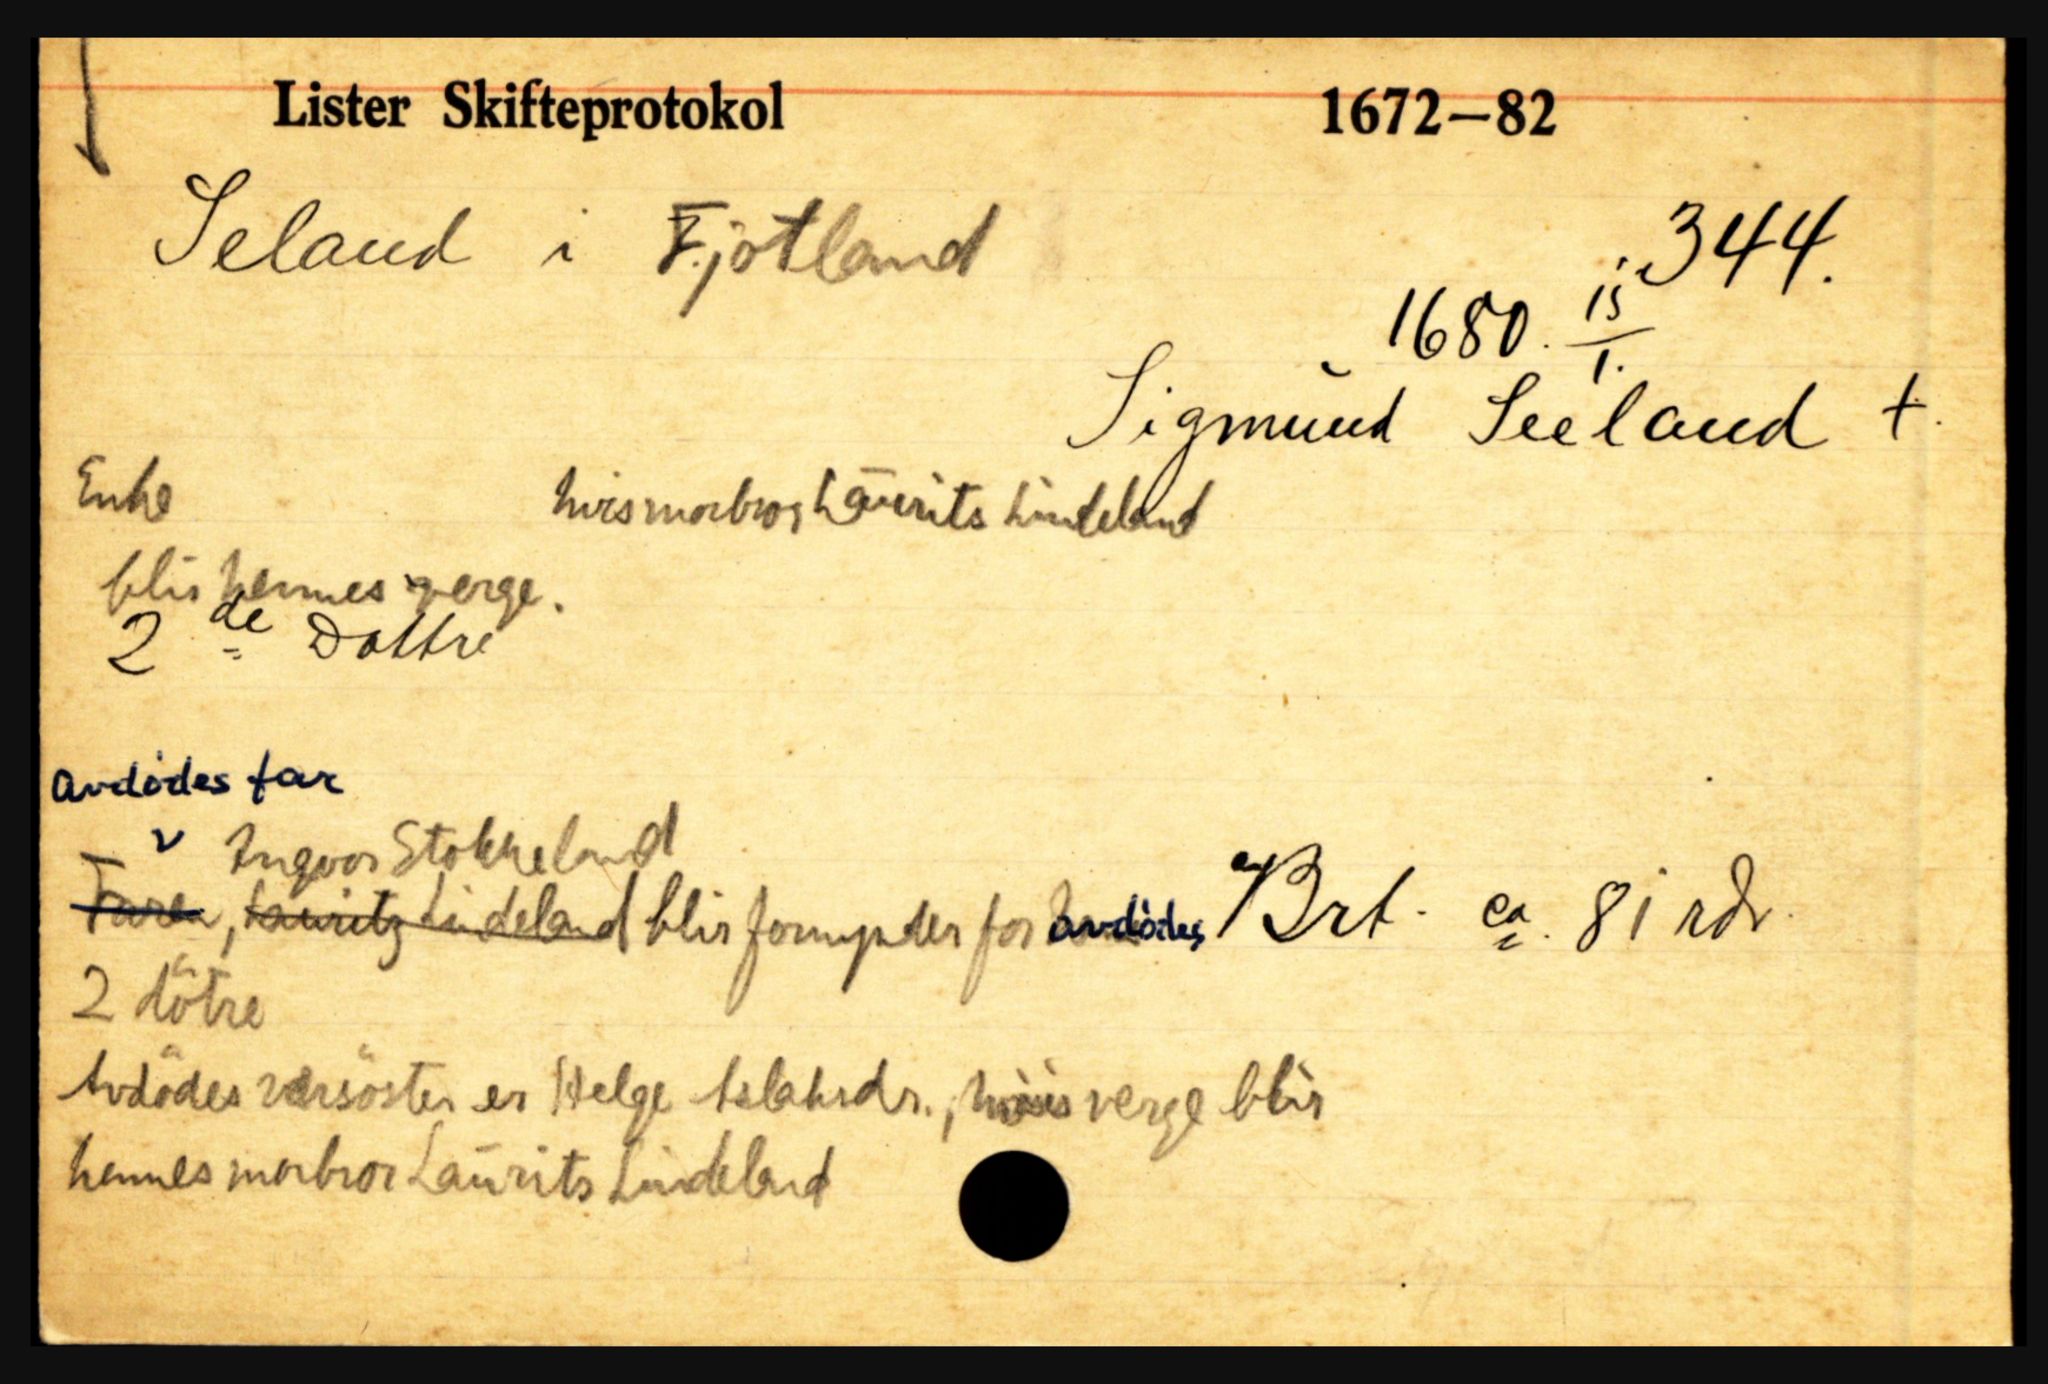 Lister Skifteprotokol 1672–82
Seland i Fjotland
344.
1680. 15/1.
Sigmund Seeland †.
Enke hvis morbror Laurits Lindeland
blir hennes verge.
2 de Dottre
Avdödes far
v Ingvor Stokkeland
Faren, Lauritz Lindeland blir formynder for avdödes Brt. ca. 81 rdr.
2 dötre
Avdödes versöster er Helge Aslaksdr., hvis verge blir
hennes morbror Laurits Lindeland